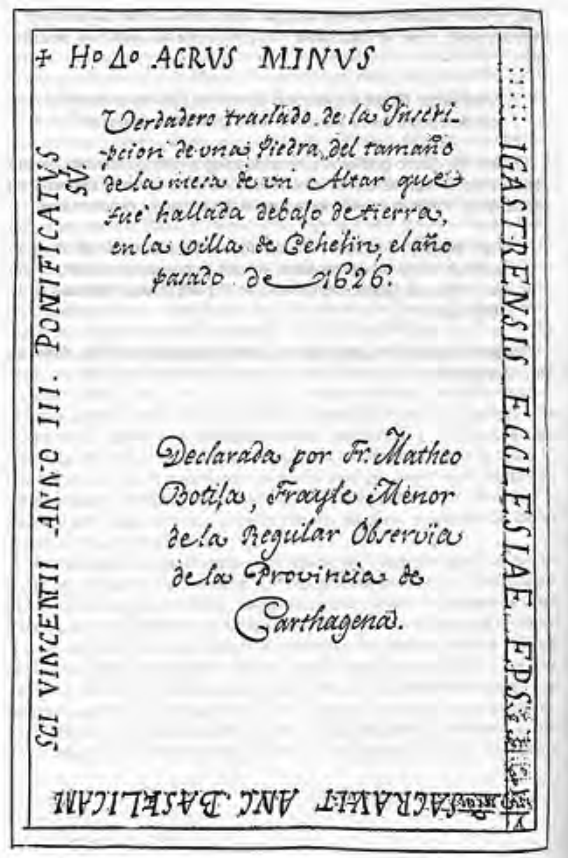 + Hº Δº ACRVS MINVS
IGASTRENSIS ECCLESIAE EPS
SACRAVIT ANC BASELICAM
SCI VINCENTII ANNO III. PONTIFICATVS
SV.
Verdadero traslado de la Inscri-
-pcion de una Piedra, del tamaño
de la mesa de un Altar que
fue hallada debajo de tierra,
en la villa de Cehehin, el año
pasado de 1626.
Declarada por Fr. Matheo
Botija, Frayle Menor
de la Regular Observïa
de la Provincia de
Carthagena.